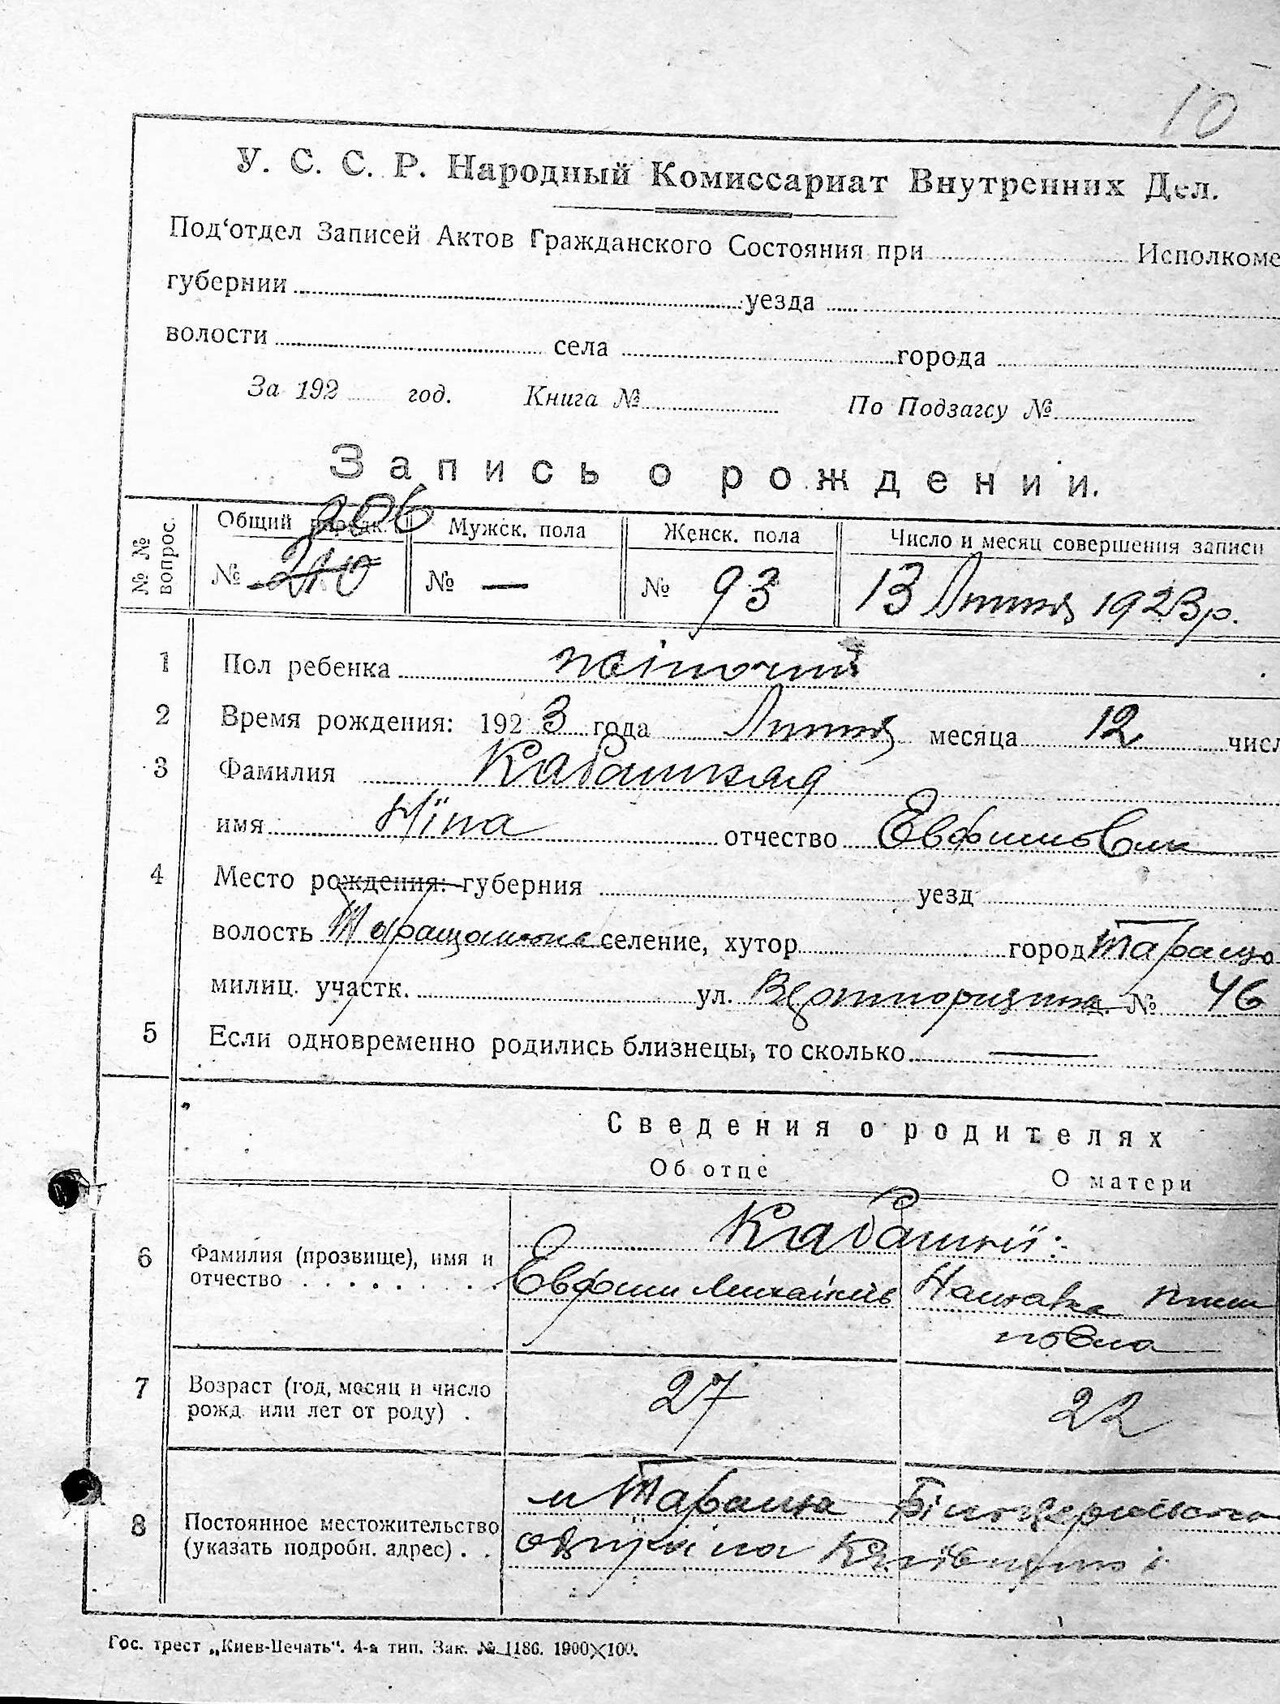 10
У. С. С. Р. Народный Комиссариат Внутренних Дел.
Под'отдел Записей Актов Гражданского Состояния при Исполкоме
губернии уезда
волости села города
За 192 год. Книга № По Подзагсу №
Запись о рождении.
№ № вопрос.
206
Общий порядк. Мужск. пола Женск. пола Число и месяц совершения записи
№ 210 № — № 93 13 Липня 1923 р.
1 Пол ребенка жіночий
2 Время рождения: 1923 года Липня месяца 12 числ
3 Фамилия Кабашная
имя Ніна отчество Евфимовна
4 Место рождения: губерния уезд
волость Таращанська селение, хутор город Тараща
милиц. участк. ул. № 46
5 Если одновременно родились близнецы, то сколько —
Сведения о родителях
Об отце О матери
6 Фамилия (прозвище), имя и отчество
Евфим Михайлів
7 Возраст (год, месяц и число рожд. или лет от роду) . 27 22
8 Постоянное местожительство (указать подробн. адрес) . .
м Тараща Білоцерківсько
округи на Київщині
Гос. трест „Киев-Печать". 4-а тип. Зак. № 1186. 1900×100.